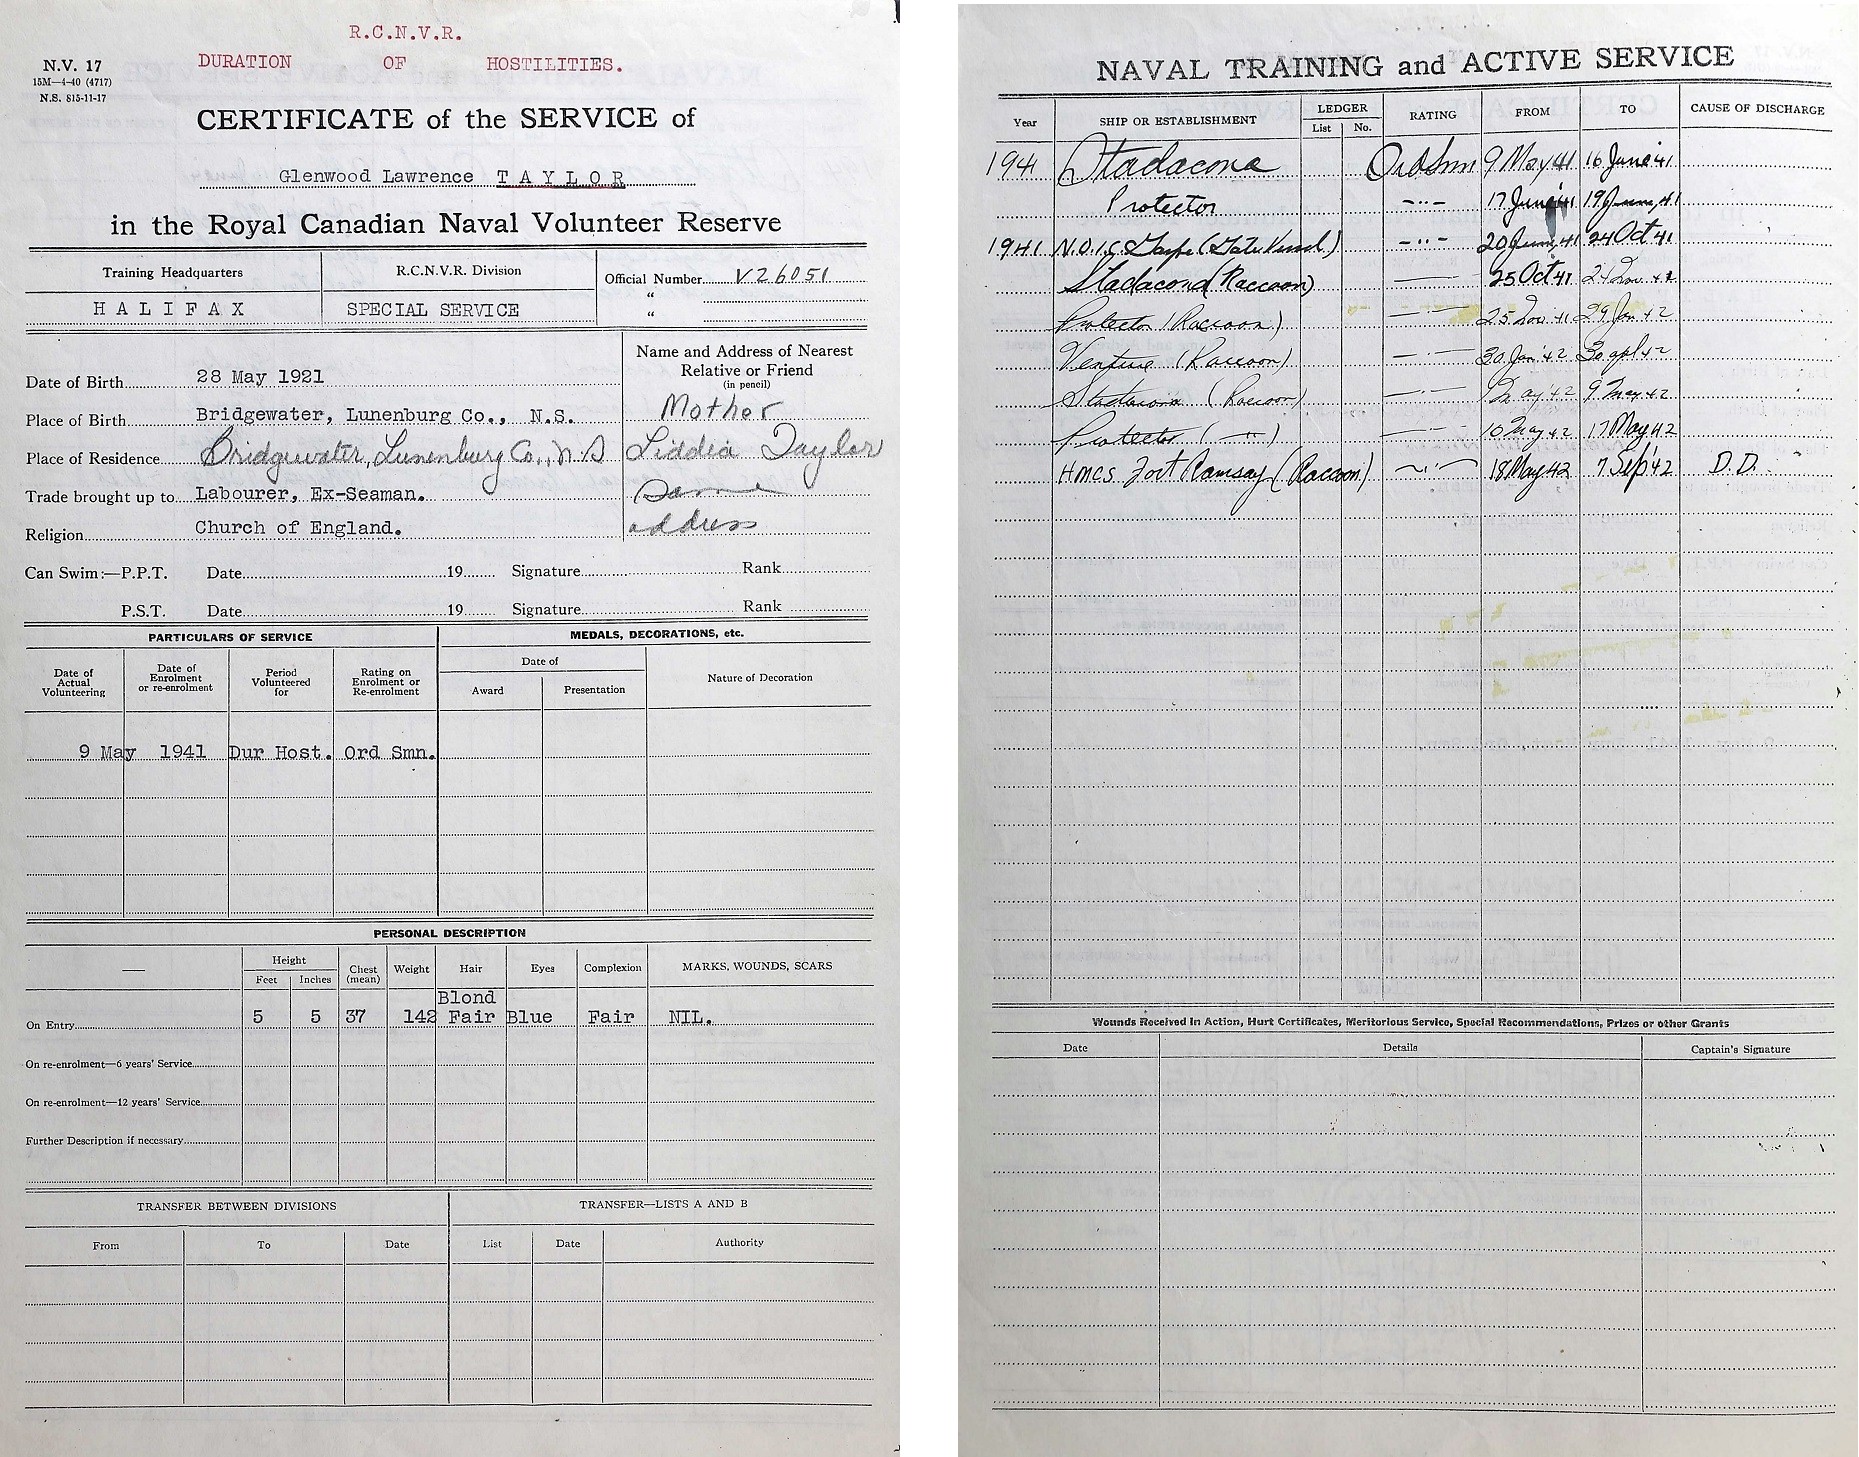 R.C.N.V.R.
DURATION OF HOSTILITIES.
N.V. 17
15M—4-40 (4717)
N.S. 815-11-17
CERTIFICATE of the SERVICE of
Glenwood Lawrence TAYLOR
in the Royal Canadian Naval Volunteer Reserve
Training Headquarters R.C.N.V.R. Division Official Number V26051
HALIFAX SPECIAL SERVICE
Name and Address of Nearest
Relative or Friend
(in pencil)
Date of Birth 28 May 1921
Place of Birth Bridgewater, Lunenburg Co., N.S. Mother
Place of Residence Bridgewater, Lunenburg Co., N.S Liddia Taylor
Trade brought up to Labourer, Ex-Seaman. Same
Religion Church of England. address
Can Swim:—P.P.T. Date 19 Signature Rank
P.S.T. Date 19 Signature Rank
PARTICULARS OF SERVICE MEDALS, DECORATIONS, etc.
Date of Actual Volunteering Date of Enrolment or re-enrolment Period Volunteered for Rating on Enrolment or Re-enrolment Date of Nature of Decoration
Award Presentation
9 May 1941 Dur Host. Ord Smn.
PERSONAL DESCRIPTION
— Height Chest (mean) Weight Hair Eyes Complexion MARKS, WOUNDS, SCARS
Feet Inches
Blond
On Entry 5 5 37 142 Fair Blue Fair NIL.
On re-enrolment—6 years' Service
On re-enrolment—12 years' Service
Further Description if necessary
TRANSFER BETWEEN DIVISIONS TRANSFER—LISTS A AND B
From To Date List Date Authority
NAVAL TRAINING and ACTIVE SERVICE
Year SHIP OR ESTABLISHMENT LEDGER RATING FROM TO CAUSE OF DISCHARGE
List No.
1941 Stadacona Ord Smn 9 May 41 16 June 41
Protector —"— 17 June 41 19 June, 41
1941 N.O.I.C. Gaspe (Gate Vessel.) —"— 20 June, 41 24 Oct 41
Stadacona (Raccoon) 25 Oct 41 24 Nov 41
Protector (Raccoon) 25 Nov 41 29 Jan 42
Venture (Raccoon) 30 Jan 42 30 apl 42
Stadacona (Raccoon) 1 May 42 9 May 42
Protector (—"—) 10 May 42 17 May 42
HMCS. Fort Ramsay (Racoon) —"— 18 May 42 7 Sep 42 D.D.
Wounds Received in Action, Hurt Certificates, Meritorious Service, Special Recommendations, Prizes or other Grants
Date Details Captain's Signature